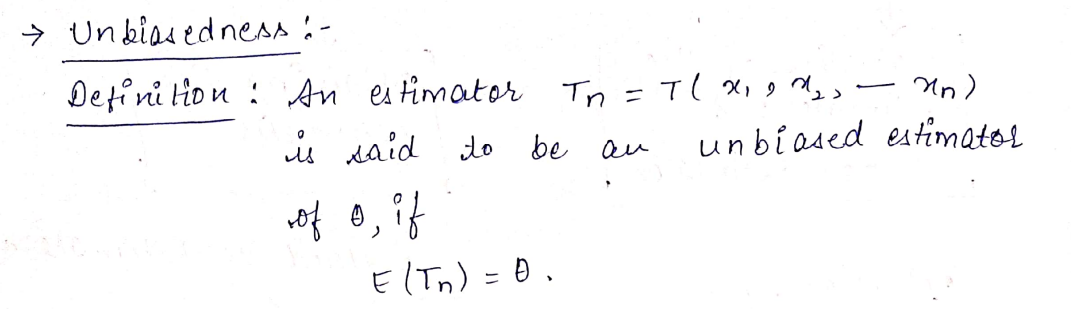 → Unbiasedness :-
Definition : An estimator Tn = T( x₁, x₂, — xn)
is said to be an unbiased estimator
of θ, if
E(Tn) = θ.